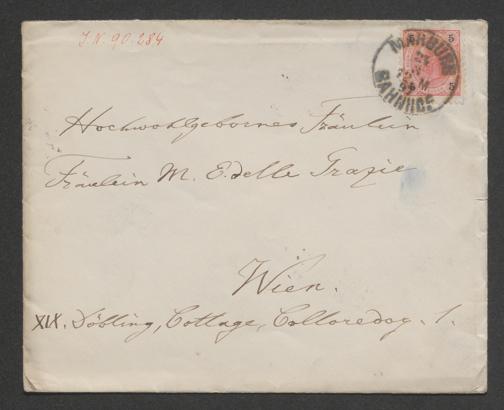 J.N. 90.284
5 5
MARBURG
BAHNHOF
Hochwohlgebornes Fräulein
Fräulein M. E. delle Grazie
Wien.
XIX. Döbling, Cottage, Colloredog. 1.